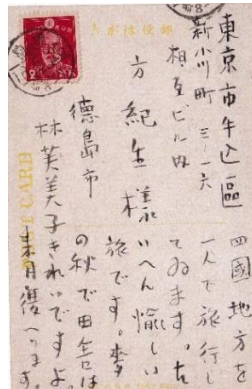 東京市牛込區
新小川町三ノ一六
相互ビル内
方紀生様
徳島市
林芙美子
四國地方を
一人で旅行し
てゐます。た
いへん愉しい
旅です。麥
の秋で田舎は
きれいですよ
来月復へります。
きがは便郵
CARD